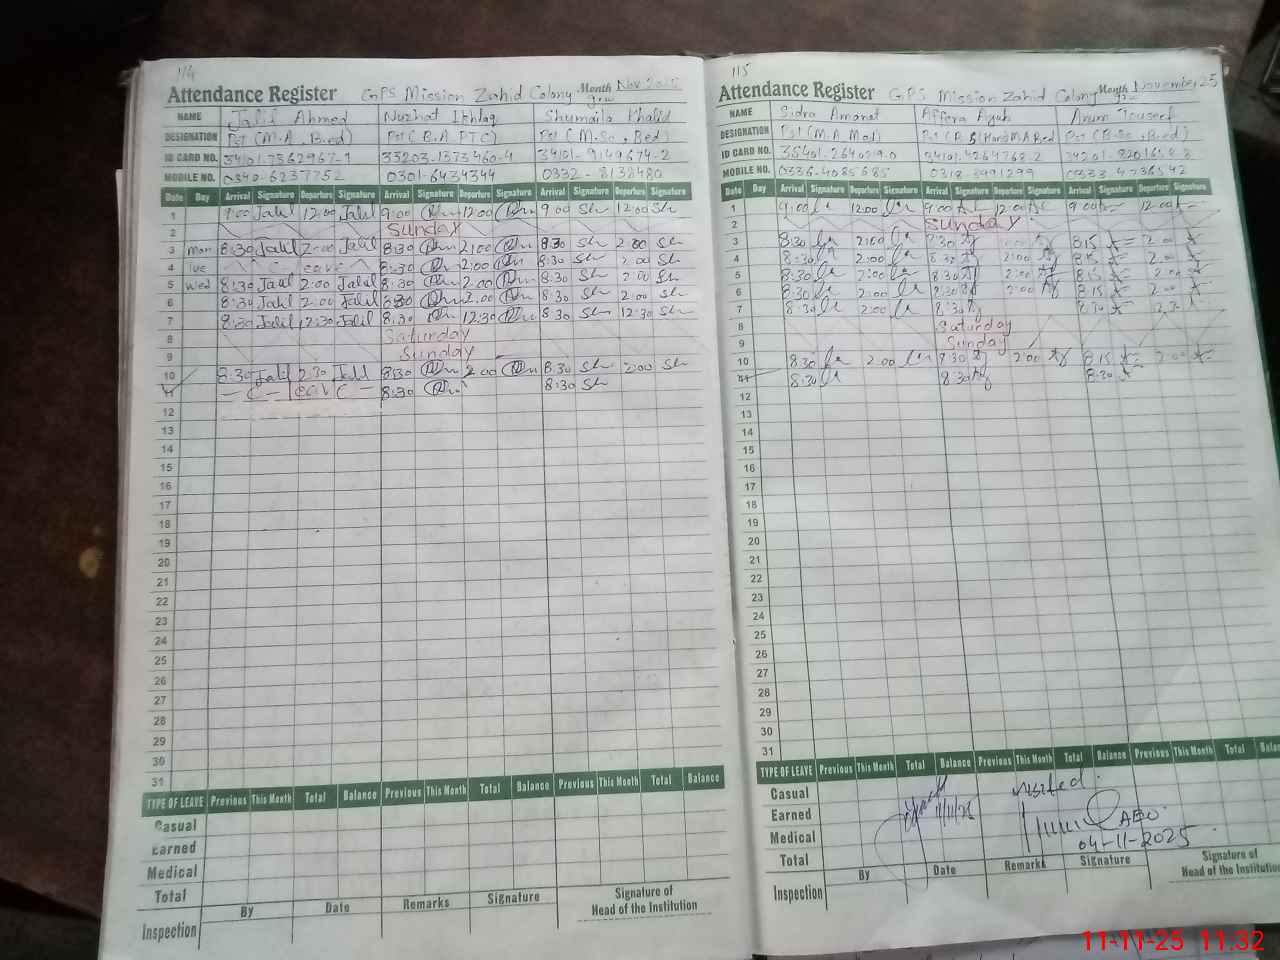 114
Attendance Register GPS Mission Zahid Colony Month Nov 2025
NAME Jalil Ahmed Nuzhat Ikhlaq Shumaila Khalid
DESIGNATION Pst (M.A, B.ed) Pst (B.A PTC) Pst (M.Sc, Bed)
ID CARD NO. 34101-7362967-1 35203-1373460-4 34101-9140674-2
MOBILE NO. 0340-6237752 0301-6434344 0332-8138480
Date Day Arrival Signature Departure Signature Arrival Signature Departure Signature Arrival Signature Departure Signature
1 9:00 Jalil 12:00 Jalil 9:00 12:00 9:00 Sh 12:00 Sh
2 Sunday
3 mon 8:30 Jalil 2:00 Jalil 8:30 2:00 8:30 Sh 2:00 Sh
4 tue Leave 8:30 2:00 8:30 Sh 2:00 Sh
5 wed 8:30 Jalil 2:00 Jalil 8:30 2:00 8:30 Sh 2:00 Sh
6 8:30 Jalil 2:00 Jalil 8:30 2:00 8:30 Sh 2:00 Sh
7 8:30 Jalil 12:30 Jalil 8:30 12:30 8:30 Sh 12:30 Sh
8 Saturday
9 Sunday
10 8:30 Jalil 2:30 Jalil 8:30 2:00 8:30 Sh 2:00 Sh
11 - C - leave - 8:30 8:30 Sh
12
13
14
15
16
17
18
19
20
21
22
23
24
25
26
27
28
29
30
31
TYPE OF LEAVE Previous This Month Total Balance Previous This Month Total Balance Previous This Month Total Balance
Casual
Earned
Medical
Total
Inspection By Date Remarks Signature Signature of
Head of the Institution
115
Attendance Register GPS Mission Zahid Colony Month November 25
NAME Sidra Amanat Affera Ayub Anum Touseef
DESIGNATION Pst (M.A Med) Pst Pst (B.Sc, B.ed)
ID CARD NO. 34101-4264768-2
MOBILE NO. 0336-4085685 0318-3491299 0333-4736542
Date Day Arrival Signature Departure Signature Arrival Signature Departure Signature Arrival Signature Departure Signature
1 9:00 12:00 9:00 12:00 9:00 12:00
2 Sunday
3 8:30 2:00 8:30 8:15 2:00
4 8:30 2:00 8:30 2:00 8:15 2:00
5 8:30 2:00 8:30 2:00 8:15 2:00
6 8:30 2:00 8:30 2:00 8:15 2:00
7 8:30 2:00 8:30
8 Saturday
9 Sunday
10 8:30 2:00 8:30 2:00 8:15 2:00
11 8:30 8:30 8:30
12
13
14
15
16
17
18
19
20
21
22
23
24
25
26
27
28
29
30
31
TYPE OF LEAVE Previous This Month Total Balance Previous This Month Total Balance Previous This Month Total Balance
Casual visited.
Earned 11/11/25 AEO
Medical 04-11-2025
Total
Inspection By Date Remarks Signature Signature of
Head of the Institution
11-11-25 11:32